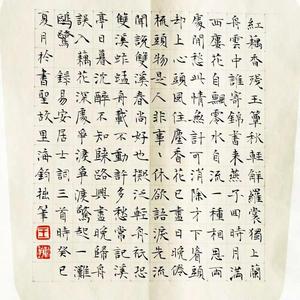 紅藕香殘玉簟秋輕解羅裳獨上蘭
舟雲中誰寄錦書來雁字回時月滿
西樓花自飄零水自流一種相思兩
處閒愁此情無計可消除才下眉頭
却上心頭風住塵香花已盡日晚倦
梳頭物是人非事事休欲語淚先流
聞說雙溪春尚好也擬泛輕舟只恐
雙溪舴艋舟載不動許多愁常記溪
亭日暮沉醉不知歸路興盡晚歸舟
誤入藕花深處爭渡爭渡驚起一灘
鷗鷺 錄易安居士詞三首時癸巳
夏月於書聖故里海鈞拙筆